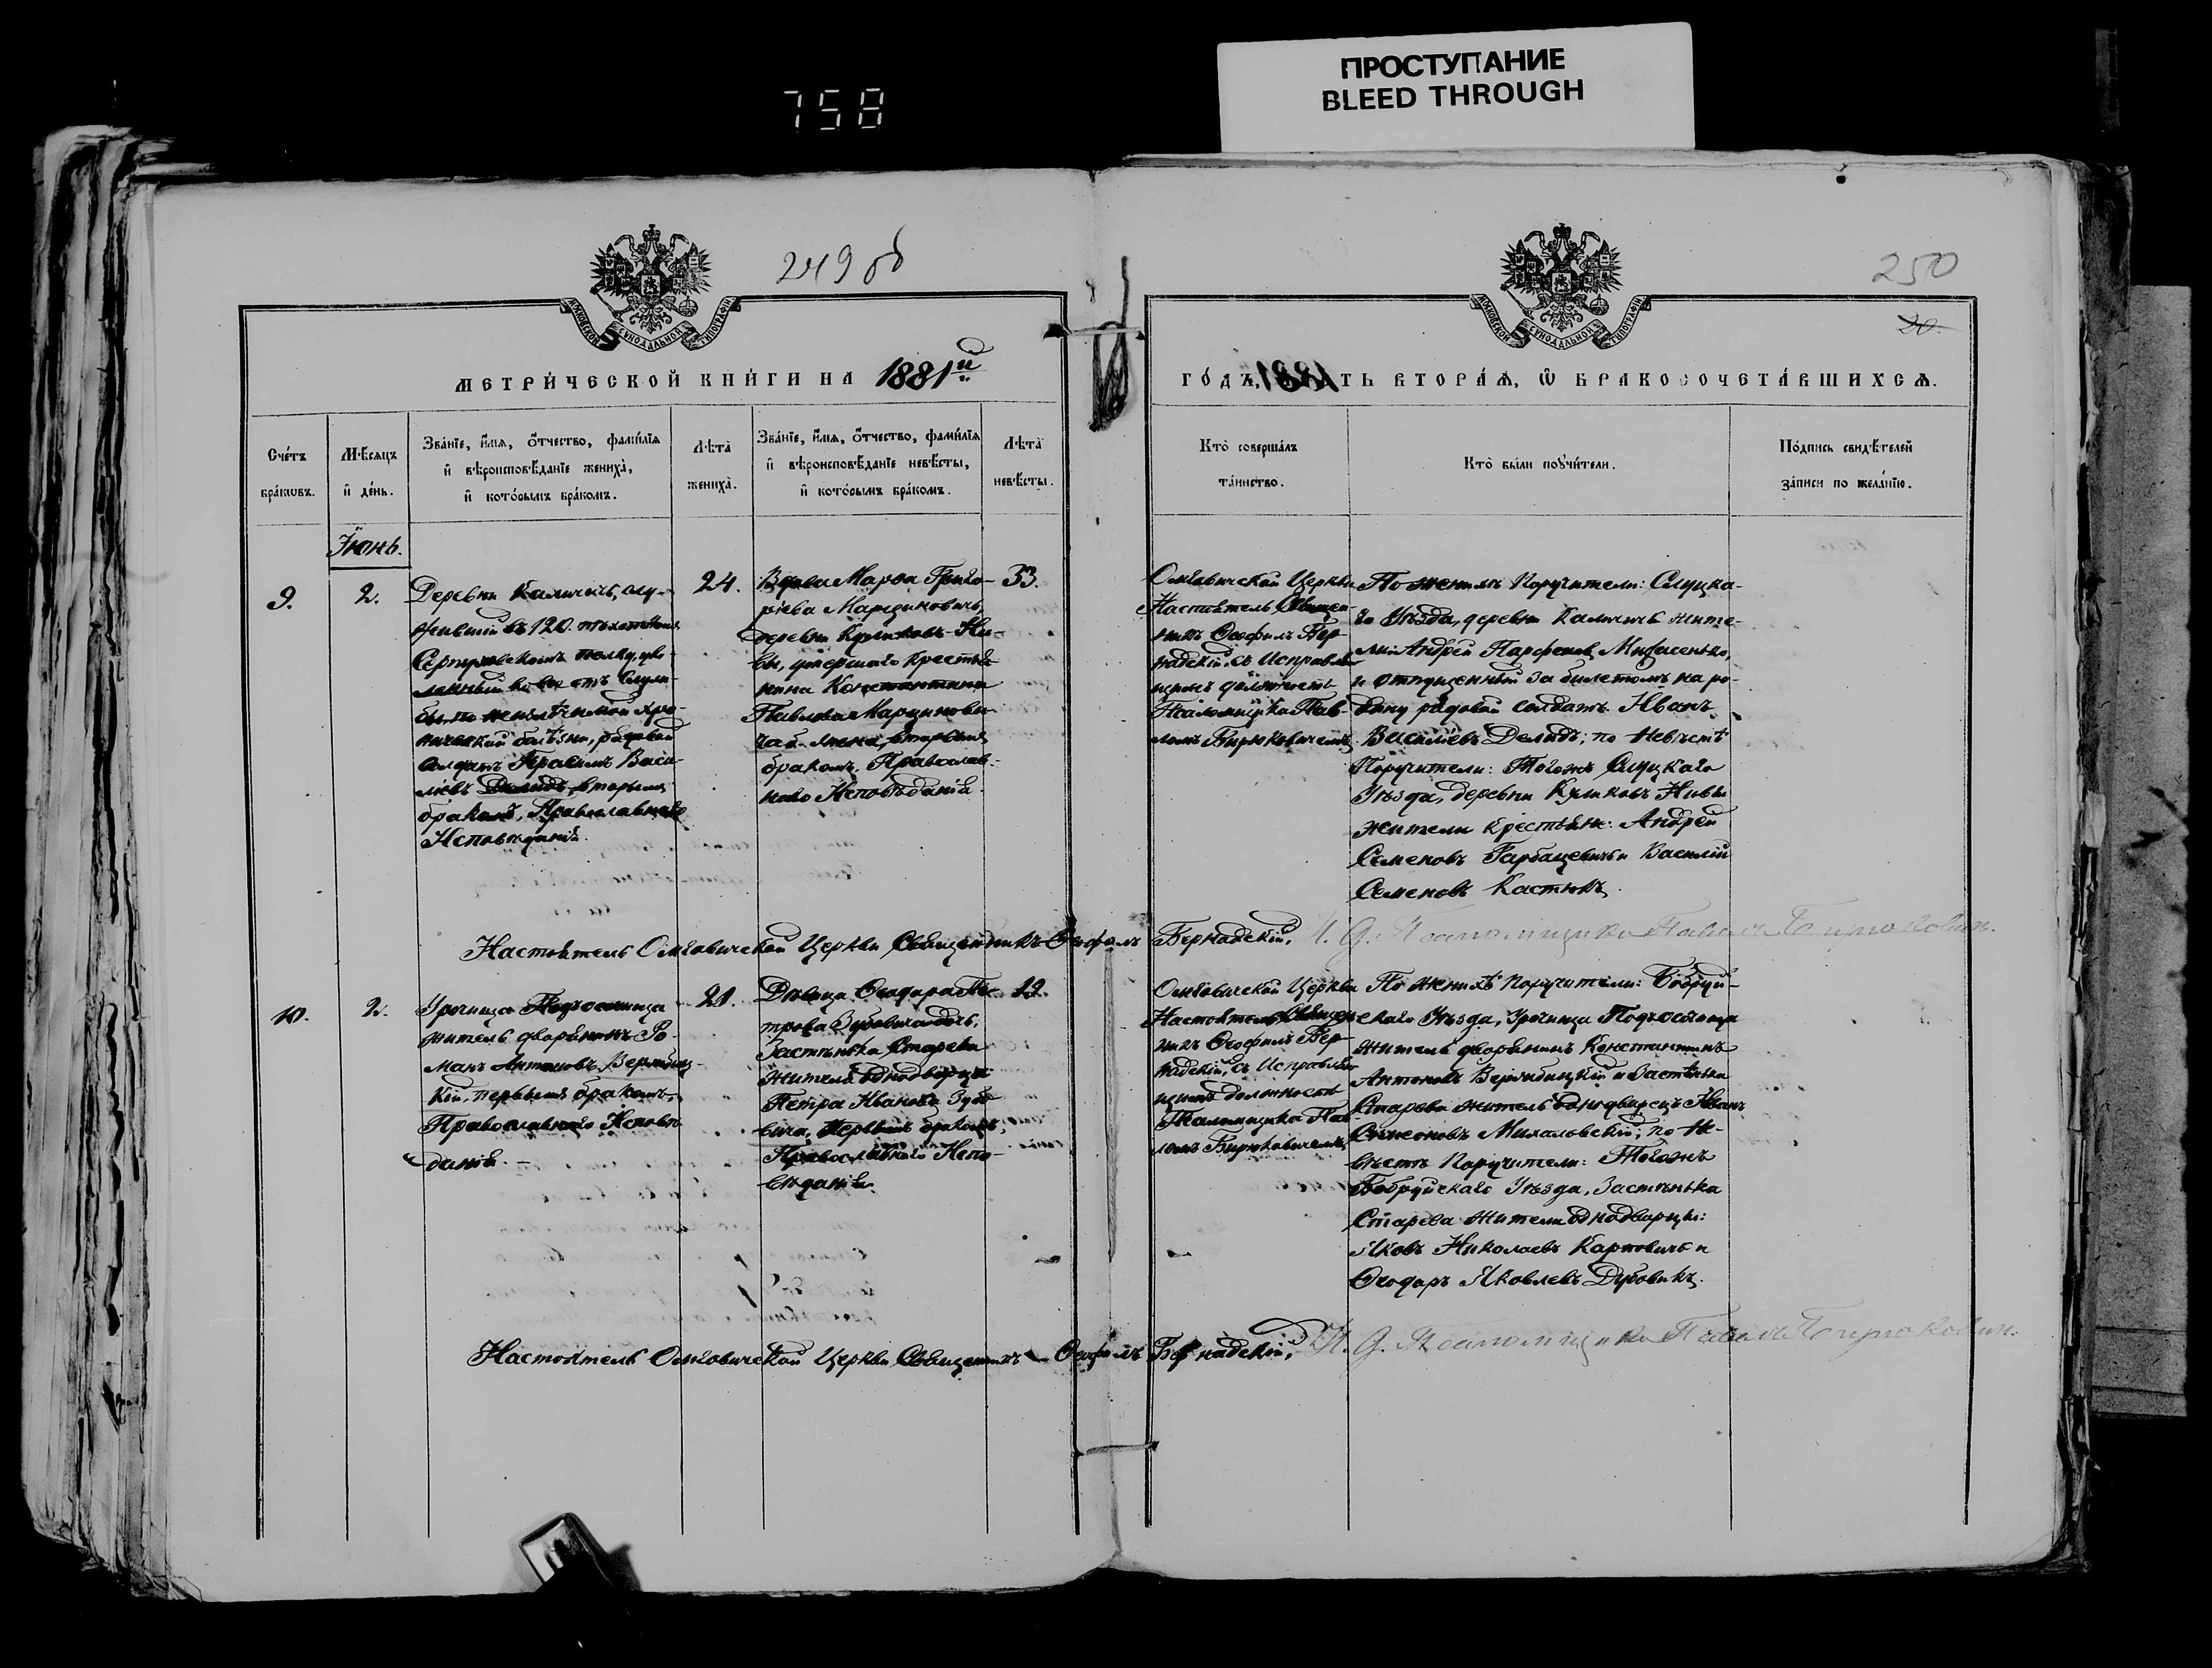 ПРОСТУПАНИЕ
BLEED THROUGH
758
249 об
250
20.
МОСКОВСКОЙ СѴНОДАЛЬНОЙ ТИПОГРАФІИ
МОСКОВСКОЙ СѴНОДАЛЬНОЙ ТИПОГРАФІИ
МЕТРИ́ЧЕСКОЙ КНИ́ГИ НА 1881й
ГО́ДЪ, ЧАСТЬ ВТОРА́Я, Ѡ БРАКОСОЧЕТА́ВШИХСЯ.
Сче́тъ
бра́ковъ.
Мѣсяцъ
и де́нь.
Зва́нїе, и́мя, о́тчество, фами́лїя
и вѣроисповѣданїе жениха̀,
и кото́рымъ бра́комъ.
Лѣта̀
жениха̀.
Зва́нїе, и́мя, о́тчество, фами́лїя
и вѣроисповѣданїе невѣсты,
и кото́рымъ бра́комъ.
Лѣта̀
невѣсты.
Кто̀ соверша́лъ
та́инство.
Кто̀ бы́ли поꙋчи́тели.
По́дпись свидѣтелей
за́писи по жела́нїю.
Іюнь.
9.
2.
Деревни Каличичъ, слу-
жившій въ 120. пѣхотномъ
Серпуховскомъ полку, уво-
ленный во все отъ служ-
бы по неизлѣчимой хро-
нической болѣзни, рядовой
солдатъ Герасимъ Васи-
ліевъ Делидъ, вторымъ
бракомъ, Православнаго
Исповѣданія.
24.
Вдова Марѳа Григо-
ріева Марциновичъ,
деревни Куликовъ-Ни-
вы, умершаго крестья-
нина Константина
Павлова Марцинови-
ча жена, вторымъ
бракомъ. Православ-
наго Исповѣданія.
33.
Омговичской Церкви
Настоятель Священ-
никъ Ѳеофилъ Бер-
надскій, съ Исправляю-
щимъ должность
Псаломщика Пав-
ломъ Бирюковичемъ.
По женихѣ Поручители: Слуцка-
го Уѣзда, деревни Каличичъ жите-
ли Андрей Парфеновъ
и отпущенный за билетомъ на ро-
дину рядовой солдатъ Иванъ
Василіевъ Делидъ; по Невѣстѣ
Поручители: Тогожъ Слуцкаго
Уѣзда, деревни Куликовъ Нивы
жители крестьяне: Андрей
Семеновъ Гарбацевичъ и Василій
Семеновъ Кастюкъ.
Настоятель Омговичской Церкви Священникъ Ѳеофилъ Бернадскій,
И. д. Псаломщика Павелъ Бирюкович.
10.
2.
Урочища Подъосница
житель дворянинъ Ро-
манъ Антоновъ Вержбиц-
кій, первымъ бракомъ,
Православнаго Исповѣ-
данія. -
21.
Дѣвица Ѳеодора Пе-
трова Зубовича дочь,
Застѣнка Старева
жителя однодворца
Петра Иванова Зубо-
вича, первымъ бракомъ,
Православнаго Испо-
вѣданія.
19.
Омговичской Церкви
Настоятель Священ-
никъ Ѳеофилъ Бер-
надскій, съ Исправляю-
щимъ должность
Псаломщика Пав-
ломъ Бирюковичемъ.
По женихѣ Поручители: Бобруй-
скаго Уѣзда, Урочища Подъосница
житель дворянинъ Константинъ
Антоновъ Вержбицкій и Застѣнка
Старева житель однодворецъ Иванъ
Симеоновъ Михаловскій; по Не-
вѣстѣ Поручители: Тогожъ
Бобруйскаго Уѣзда, Застѣнка
Старева жители однодворцы:
Яковъ Николаевъ Карповичъ и
Ѳеодоръ Яковлевъ Дубовикъ.
Настоятель Омговичской Церкви Священникъ Ѳеофилъ Бернадскій,
И. д. Псаломщика Павелъ Бирюкович.